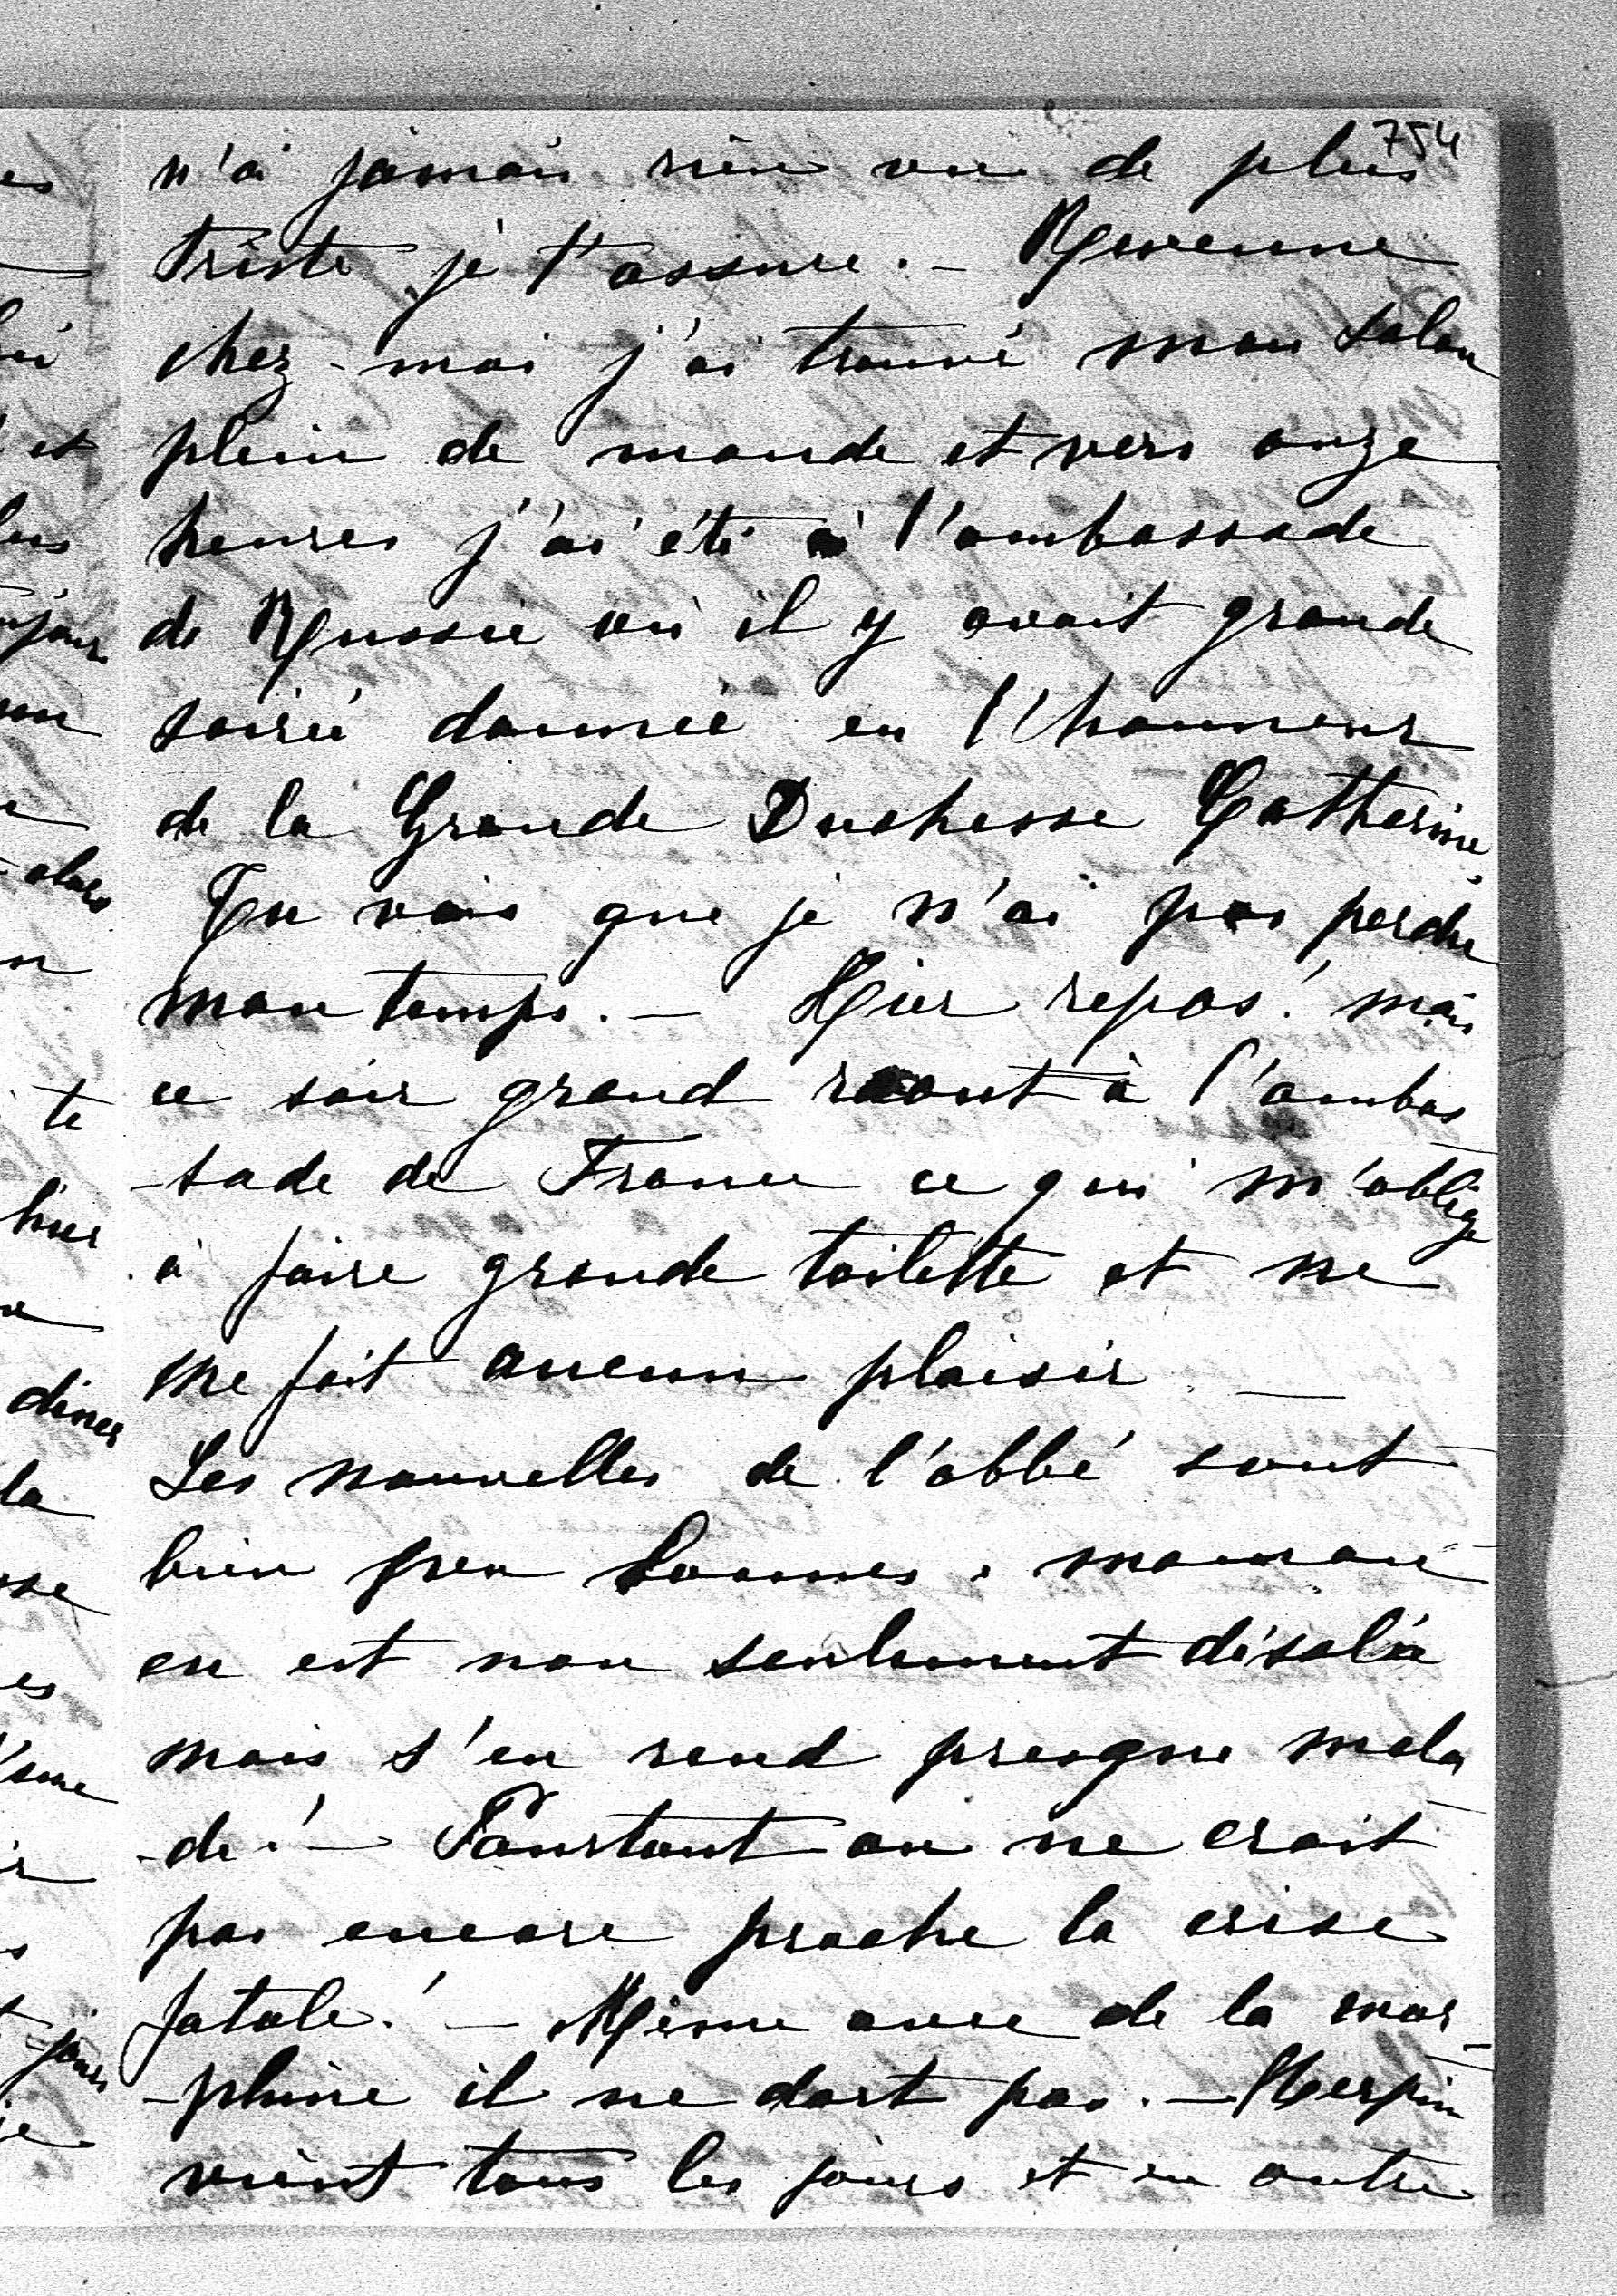 754
n'ai jamais rien vu de plus
triste je t'assure. — Revenue
chez-moi j'ai trouvé mon salon
plein de monde et vers onze
heures j'ai été à l'ambassade
de Russie où il y avait grande
soirée donnée en l'honneur
de la Grande Duchesse Catherine.
Tu vois que je n'ai pas perdu
mon temps. — Hier repos! mais
ce soir grand raout à l'ambas
-sade de France ce qui m'oblige
à faire grande toilette et ne
me fait aucun plaisir —
Les nouvelles de l'abbé sont
bien peu bonnes. maman
en est non seulement désolée
mais s'en rend presque mala
-de! — Pourtant on ne croit
pas encore proche la crise
fatale! — Même avec de la mor-
-phine il ne dort pas. — Herpin
vient tous les jours et en outre